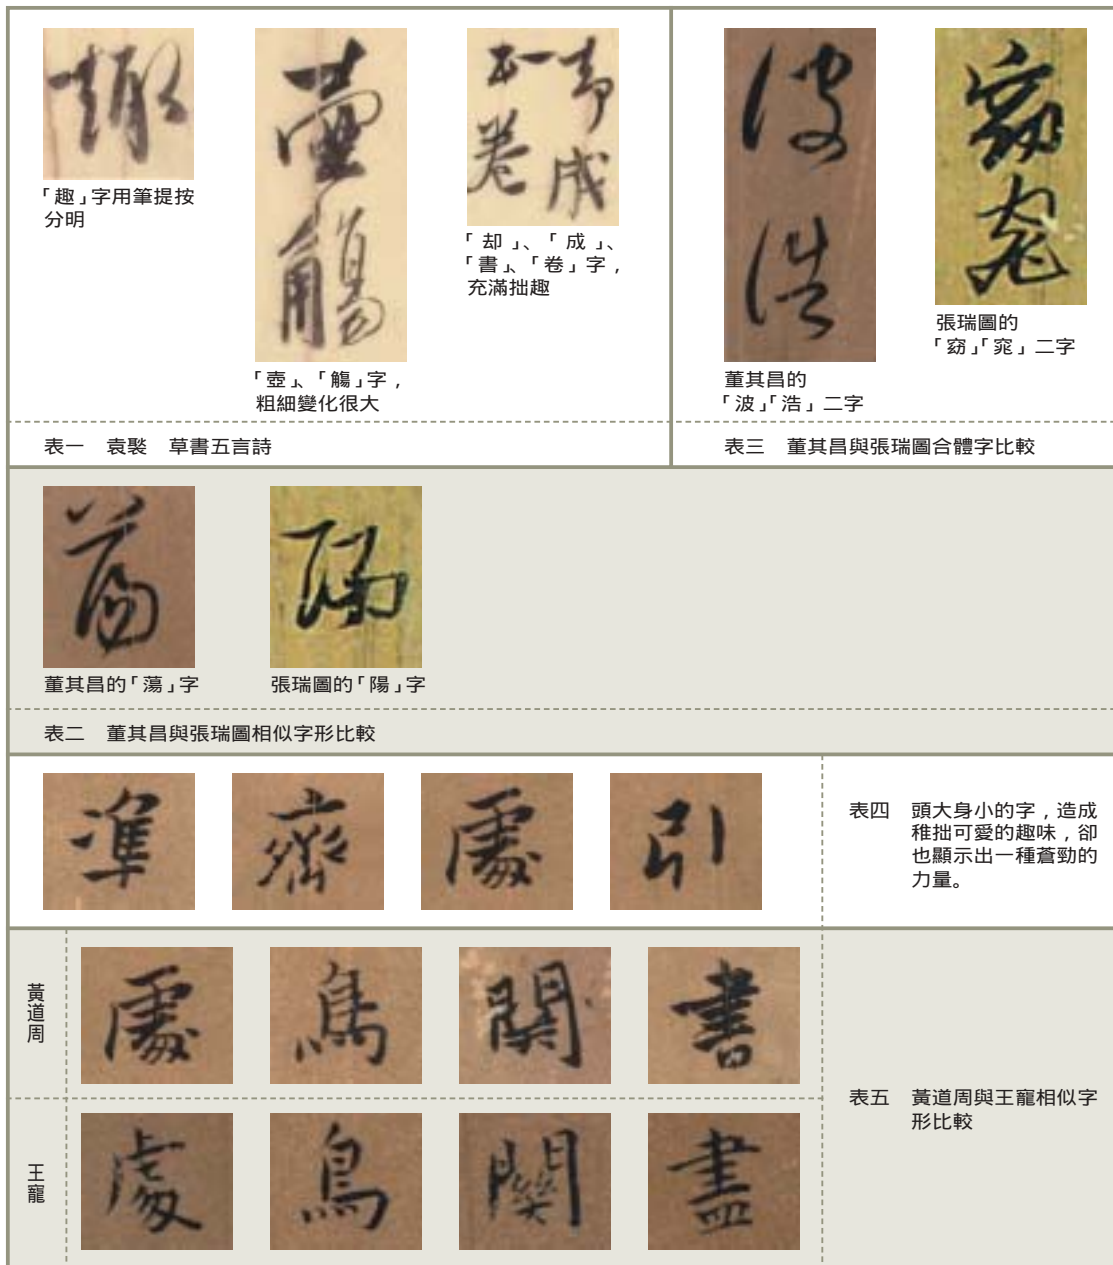 「趣」字用筆提按
分明
「壺」、「觴」字，
粗細變化很大
「却」、「成」、
「書」、「卷」字，
充滿拙趣
表一　袁褧　草書五言詩
董其昌的
「波」「浩」二字
張瑞圖的
「窈」「窕」二字
表三　董其昌與張瑞圖合體字比較
董其昌的「蕩」字
張瑞圖的「陽」字
表二　董其昌與張瑞圖相似字形比較
準 齊 處 引
表四　頭大身小的字，造成
稚拙可愛的趣味，卻
也顯示出一種蒼勁的
力量。
黃道周
處 鳥 關 書
王寵
處 鳥 關 盡
表五　黃道周與王寵相似字
形比較